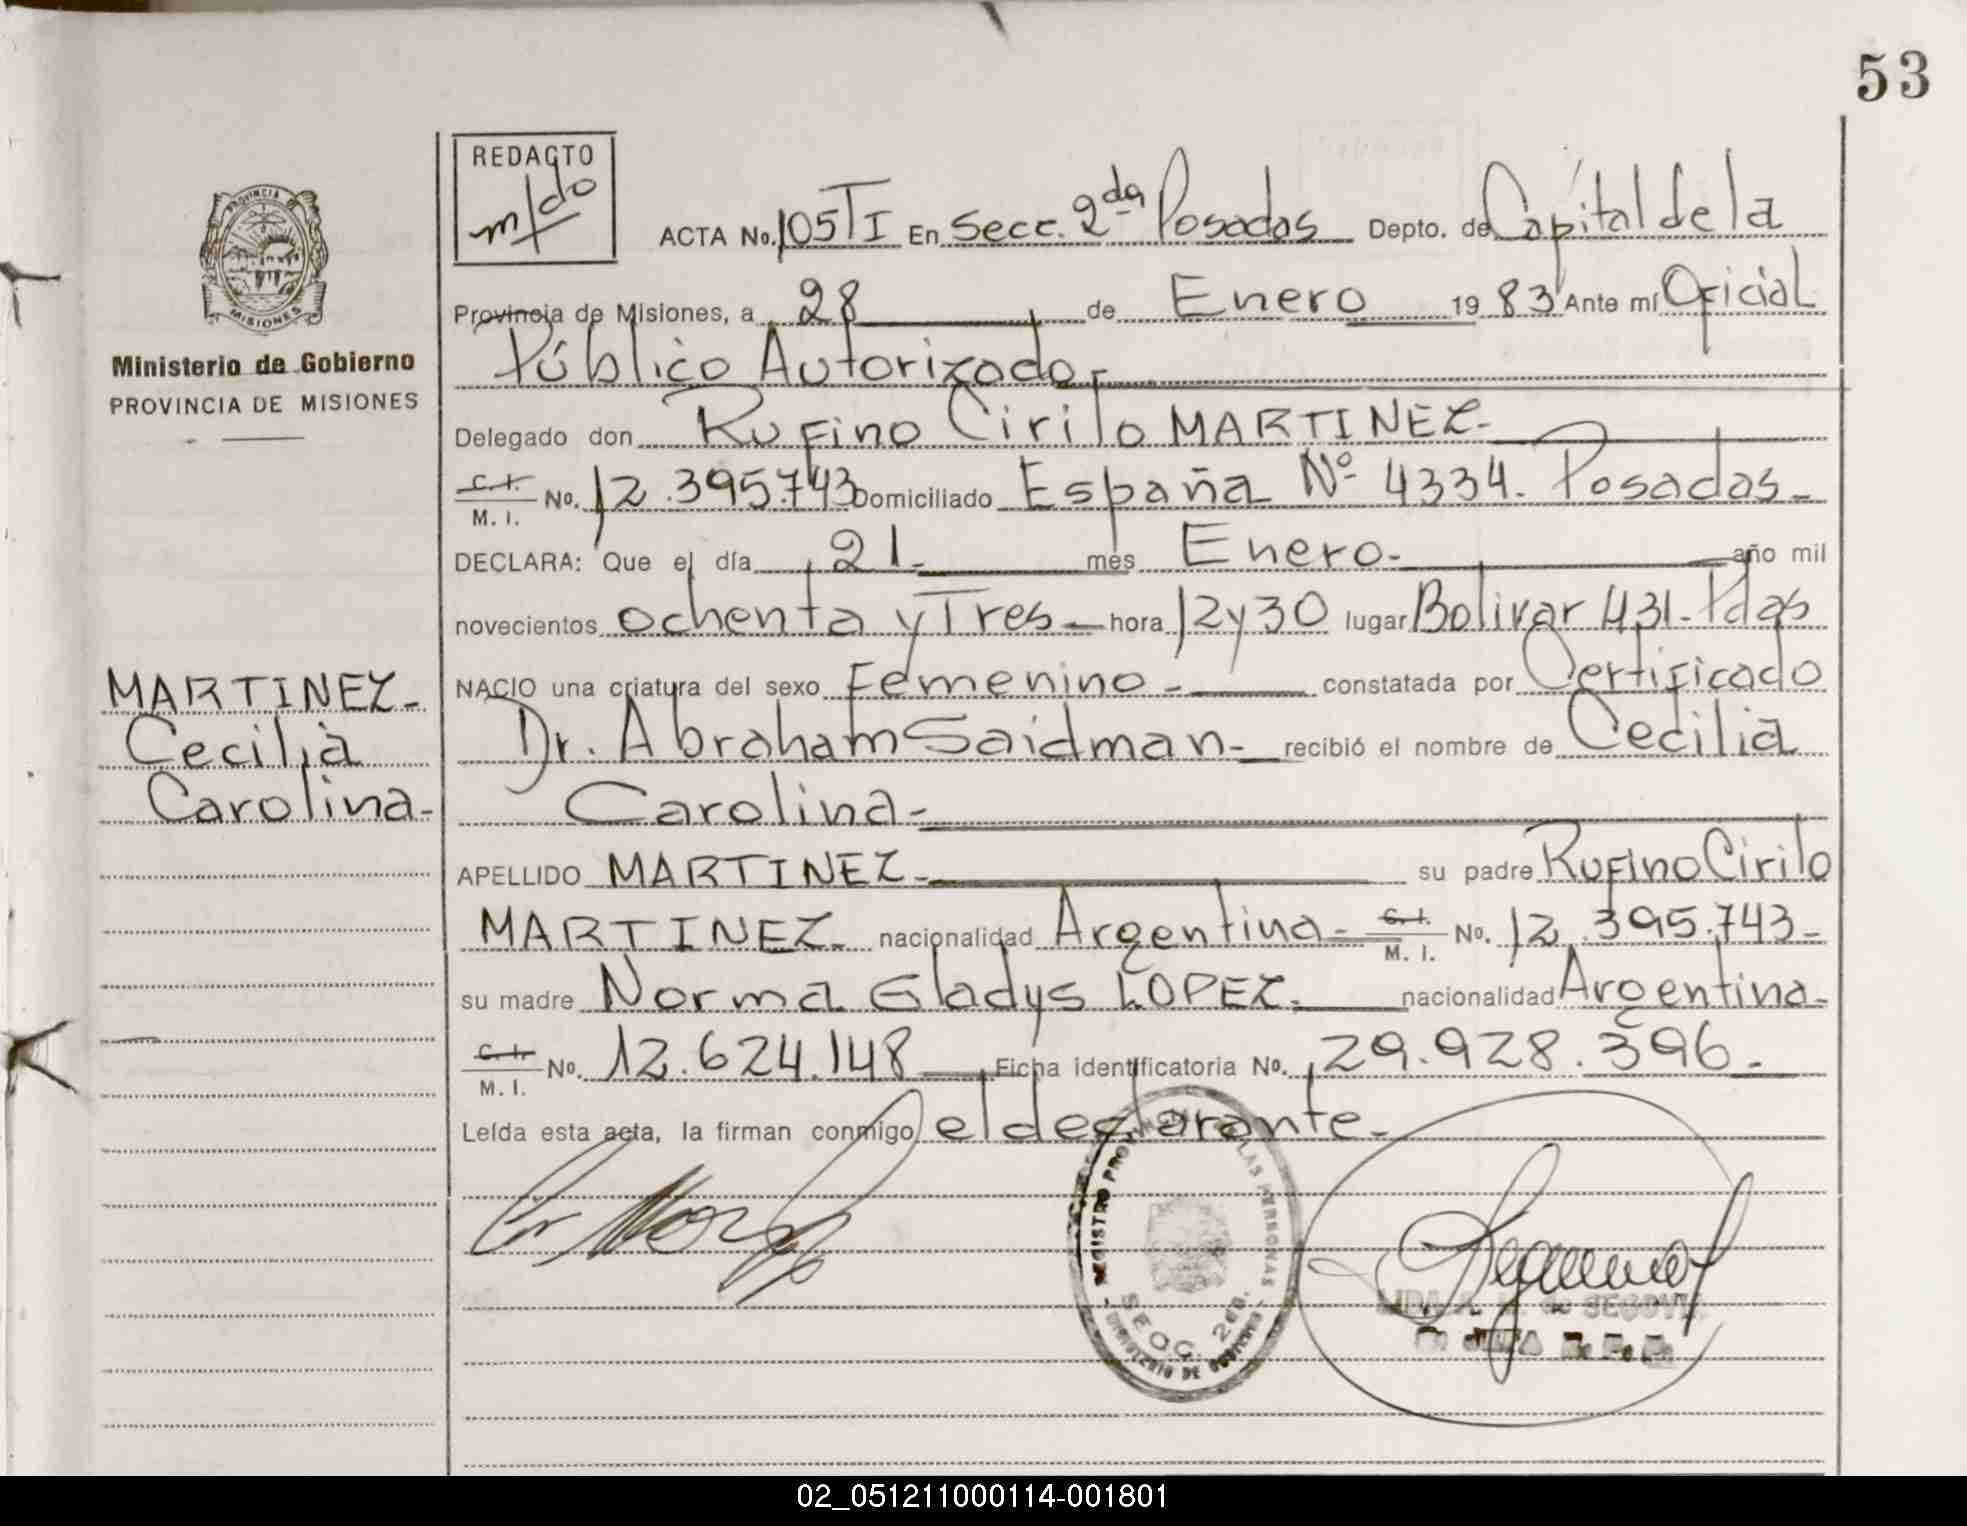 53
REDACTO
m/do
ACTA No. 105 TI En Secc. 2da Posadas Depto. de Capital de la
Provincia de Misiones, a 28 de Enero 1983 Ante mí Oficial
Público Autorizado.-
PROVINCIA
MISIONES
Ministerio de Gobierno
PROVINCIA DE MISIONES
Delegado don Rufino Cirilo MARTINEZ.-
C.I. M. I. No. 12.395.743 Domiciliado España Nº 4334. Posadas.-
DECLARA: Que el día 21.- mes Enero.- año mil
novecientos ochenta y Tres hora 12 y 30 lugar Bolivar 431. Pdas
NACIO una criatura del sexo Femenino.- constatada por Certificado
Dr. Abraham Saidman.- recibió el nombre de Cecilia
Carolina.-
MARTINEZ.-
Cecilia
Carolina.-
APELLIDO MARTINEZ.- su padre Rufino Cirilo
MARTINEZ.- nacionalidad Argentina.- C.I. M. I. No. 12.395.743.-
su madre Norma Gladys LOPEZ. nacionalidad Argentina.-
C.I. M. I. No. 12.624.148 Ficha identificatoria No. 29.928.396.-
Leída esta acta, la firman conmigo el declarante.-
REGISTRO PROVINCIAL DE LAS PERSONAS
SECC. 2da.
MINISTERIO DE GOBIERNO
de SEGOVIA
02_051211000114-001801